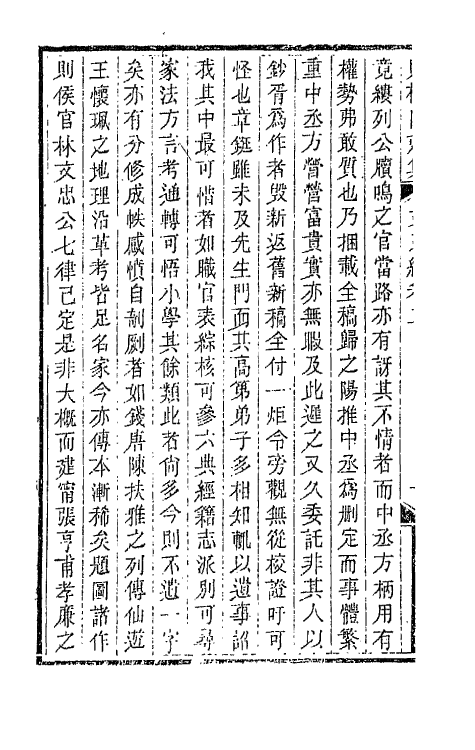 竟縷列公牘鳴之官當路亦有訝其不情者而中丞方柄用有
權勢弗敢質也乃捆載全稿歸之陽推中丞爲刪定而事體繁
重中丞方營營富貴實亦無暇及此遲之又久委託非其人以
鈔胥爲作者毀新返舊新稿全付一炬令旁觀無從校證吁可
怪也章鋋雖未及先生門而其高第弟子多相知輒以遺事詔
我其中最可惜者如職官表綜核可參六典經籍志派別可尋
家法方言考通轉可悟小學其餘類此者尙多今則不遺一字
矣亦有分修成帙感憤自剞劂者如錢唐陳扶雅之列傳仙遊
王懷珮之地理沿革考皆足名家今亦傳本漸稀矣題圖諸作
則侯官林文忠公七律已定是非大概而建甯張亨甫孝廉之